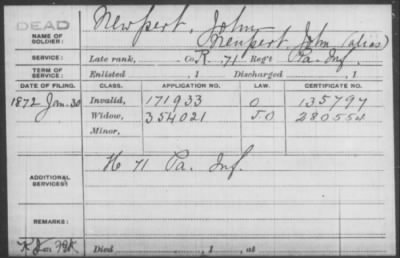 DEAD
NAME OF SOLDIER: Newpert, John
Neupert, John (alias)
SERVICE: Late rank, Co. R. 71 Reg't Pa. Inf.
TERM OF SERVICE: Enlisted , 1 Discharged , 1
DATE OF FILING. CLASS. APPLICATION NO. LAW. CERTIFICATE NO.
1872 Jan. 30 Invalid, 171933 O 135797
Widow, 354021 J.O 280554
Minor,
ADDITIONAL SERVICES: K 71 Pa. Inf.
REMARKS:
Died , 1 , at